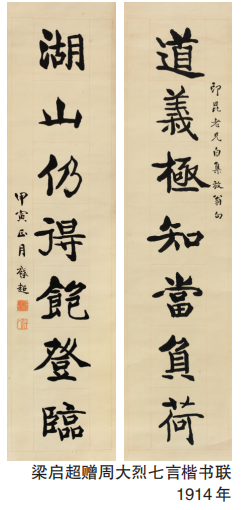 道義極知當負荷
印昆老兄自集放翁句
湖山仍得飽登臨
甲寅正月啓超
梁启超赠周大烈七言楷书联
1914年